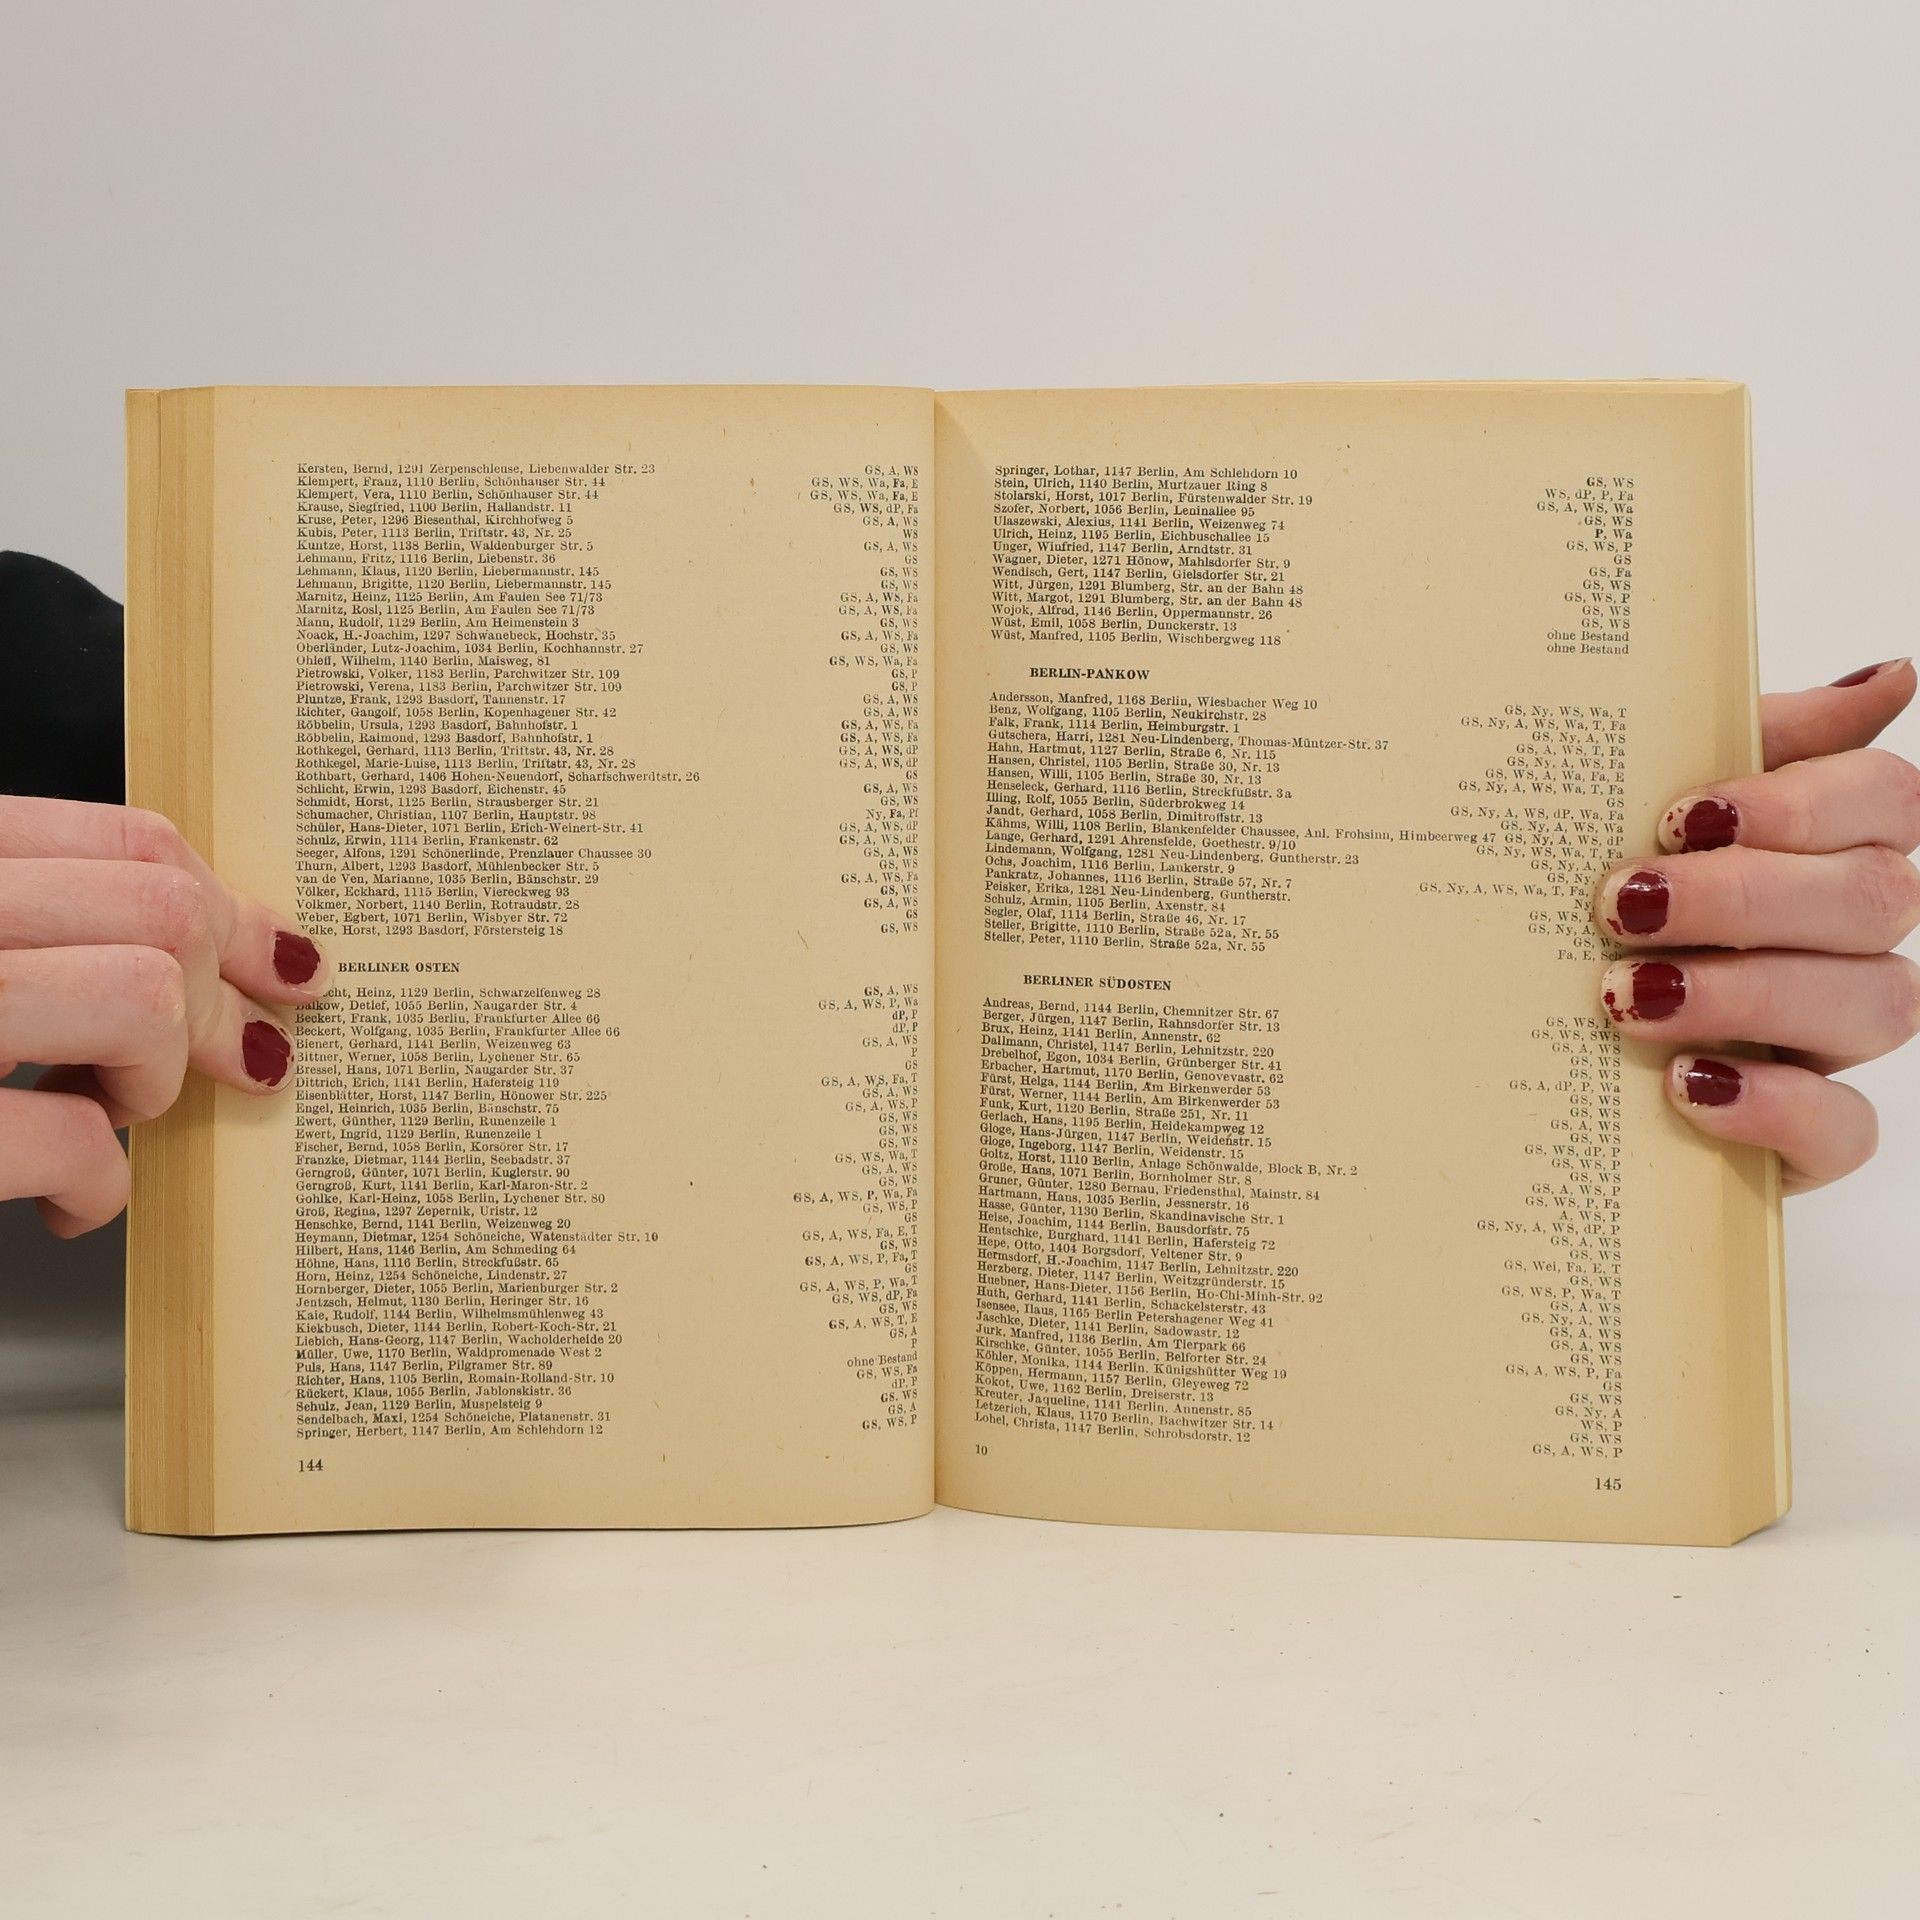 Kersten, Bernd, 1291 Zerpenschleuse, Liebenwalder Str. 23 GS, A, WS
Klempert, Franz, 1110 Berlin, Schönhauser Str. 44 GS, WS, Wa, Fa, E
Klempert, Vera, 1110 Berlin, Schönhauser Str. 44 GS, WS, Wa, Fa, E
Krause, Siegfried, 1100 Berlin, Hallandstr. 11 GS, WS, dP, Fa
Kruse, Peter, 1296 Biesenthal, Kirchhofweg 5 GS, A, WS
Kubis, Peter, 1113 Berlin, Triftstr. 43, Nr. 25 WS
Kuntze, Horst, 1138 Berlin, Waldenburger Str. 5 GS, A, WS
Lehmann, Fritz, 1116 Berlin, Liebenstr. 36 GS
Lehmann, Klaus, 1120 Berlin, Liebermannstr. 145 GS, WS
Lehmann, Brigitte, 1120 Berlin, Liebermannstr. 145 GS, WS
Marnitz, Heinz, 1125 Berlin, Am Faulen See 71/73 GS, A, WS, Fa
Marnitz, Rosl, 1125 Berlin, Am Faulen See 71/73 GS, A, WS, Fa
Mann, Rudolf, 1129 Berlin, Am Heimenstein 3 GS, WS
Noack, H.-Joachim, 1297 Schwanebeck, Hochstr. 35 GS, A, WS, Fa
Oberländer, Lutz-Joachim, 1034 Berlin, Kochhannstr. 27 GS, WS
Ohleff, Wilhelm, 1140 Berlin, Maisweg, 81 GS, WS, Wa, Fa
Pietrowski, Volker, 1183 Berlin, Parchwitzer Str. 109 GS, P
Pietrowski, Verena, 1183 Berlin, Parchwitzer Str. 109 GS, P
Pluntze, Frank, 1293 Basdorf, Tannenstr. 17 GS, A, WS
Richter, Gangolf, 1058 Berlin, Kopenhagener Str. 42 GS, A, WS
Röbbelin, Ursula, 1293 Basdorf, Bahnhofstr. 1 GS, A, WS, Fa
Röbbelin, Raimond, 1293 Basdorf, Bahnhofstr. 1 GS, A, WS, Fa
Rothkegel, Gerhard, 1113 Berlin, Triftstr. 43, Nr. 28 GS, A, WS, dP
Rothkegel, Marie-Luise, 1113 Berlin, Triftstr. 43, Nr. 28 GS, A, WS, dP
Rothbart, Gerhard, 1406 Hohen-Neuendorf, Scharfschwerdtstr. 26 GS
Schlicht, Erwin, 1293 Basdorf, Eichenstr. 45 GS, A, WS
Schmidt, Horst, 1125 Berlin, Strausberger Str. 21 GS, WS
Schumacher, Christian, 1107 Berlin, Hauptstr. 98 Ny, Fa, Pf
Schüler, Hans-Dieter, 1071 Berlin, Erich-Weinert-Str. 41 GS, A, WS, dP
Schulz, Erwin, 1114 Berlin, Frankenstr. 62 GS, A, WS, dP
Seeger, Alfons, 1291 Schönerlinde, Prenzlauer Chaussee 30 GS, A, WS
Thurn, Albert, 1293 Basdorf, Mühlenbecker Str. 5 GS, WS
van de Ven, Marianne, 1035 Berlin, Bänschstr. 29 GS, A, WS, Fa
Völker, Eckhard, 1115 Berlin, Viereckweg 93 GS, WS
Volkmer, Norbert, 1140 Berlin, Rotraudstr. 28 GS, A, WS
Weber, Egbert, 1071 Berlin, Wisbyer Str. 72 GS
Welke, Horst, 1293 Basdorf, Förstersteig 18 GS, WS
BERLINER OSTEN
Heinz, 1129 Berlin, Schwarzelfenweg 28 GS, A, WS
Detlef, 1055 Berlin, Naugarder Str. 4 GS, A, WS, P, Wa
Beckert, Frank, 1035 Berlin, Frankfurter Allee 66 dP, P
Beckert, Wolfgang, 1035 Berlin, Frankfurter Allee 66 dP, P
Bienert, Gerhard, 1141 Berlin, Weizenweg 63 GS, A, WS
Bittner, Werner, 1058 Berlin, Lychener Str. 65 P
Bressel, Hans, 1071 Berlin, Naugarder Str. 37 GS
Dittrich, Erich, 1141 Berlin, Hafersteig 119 GS, A, WS, Fa, T
Eisenblätter, Horst, 1147 Berlin, Hönower Str. 225 GS, A, WS
Engel, Heinrich, 1035 Berlin, Bänschstr. 75 GS, A, WS, P
Ewert, Günther, 1129 Berlin, Runenzeile 1 GS, WS
Ewert, Ingrid, 1129 Berlin, Runenzeile 1 GS, WS
Fischer, Bernd, 1058 Berlin, Korsörer Str. 17 GS, WS
Franzke, Dietmar, 1144 Berlin, Seebadstr. 37 GS, WS, Wa, T
Gerngroß, Günter, 1071 Berlin, Kuglerstr. 90 GS, A, WS
Gerngroß, Kurt, 1141 Berlin, Karl-Maron-Str. 2 GS, WS
Gohlke, Karl-Heinz, 1058 Berlin, Lychener Str. 80 GS, A, WS, P, Wa, Fa
Groß, Regina, 1297 Zepernik, Uristr. 12 GS, WS, P
Henschke, Bernd, 1141 Berlin, Weizenweg 20 GS
Heymann, Dietmar, 1254 Schöneiche, Watenstädter Str. 10 GS, A, WS, Fa, E, T
Hilbert, Hans, 1146 Berlin, Am Schmeding 64 GS, WS
Höhne, Hans, 1116 Berlin, Streckfußstr. 65 GS, A, WS, P, Fa, T
Horn, Heinz, 1254 Schöneiche, Lindenstr. 27 GS
Hornberger, Dieter, 1055 Berlin, Marienburger Str. 2 GS, A, WS, P, Wa, T
Jentzsch, Helmut, 1130 Berlin, Heringer Str. 16 GS, WS, dP, Fa
Kaie, Rudolf, 1144 Berlin, Wilhelmsmühlenweg 43 GS, WS
Kiekbusch, Dieter, 1144 Berlin, Robert-Koch-Str. 21 GS, A, WS, T, E
Liebich, Hans-Georg, 1147 Berlin, Wacholderheide 20 GS, A
Müller, Uwe, 1170 Berlin, Waldpromenade West 2 P
Puls, Hans, 1147 Berlin, Pilgramer Str. 89 ohne Bestand
Richter, Hans, 1105 Berlin, Romain-Rolland-Str. 10 GS, WS, Fa
Rückert, Klaus, 1055 Berlin, Jablonskistr. 36 dP, P
Schulz, Jean, 1129 Berlin, Muspelsteig 9 GS, WS
Sendelbach, Maxi, 1254 Schöneiche, Platanenstr. 31 GS, A
Springer, Herbert, 1147 Berlin, Am Schlehdorn 12 GS, WS, P
144
Springer, Lothar, 1147 Berlin, Am Schlehdorn 10 GS, WS
Stein, Ulrich, 1140 Berlin, Murtzauer Ring 8 WS, dP, P, Fa
Stolarski, Horst, 1017 Berlin, Fürstenwalder Str. 19 GS, A, WS, Wa
Szofer, Norbert, 1056 Berlin, Leninallee 95 GS, WS
Ulaszewski, Alexius, 1141 Berlin, Weizenweg 74 P, Wa
Ulrich, Heinz, 1195 Berlin, Eichbuschallee 15 GS, WS, P
Unger, Winfried, 1147 Berlin, Arndtstr. 31 GS
Wagner, Dieter, 1271 Hönow, Mahlsdorfer Str. 9 GS, Fa
Wendisch, Gert, 1147 Berlin, Gielsdorfer Str. 21 GS, WS
Witt, Jürgen, 1291 Blumberg, Str. an der Bahn 48 GS, WS, P
Witt, Margot, 1291 Blumberg, Str. an der Bahn 48 GS, WS
Wojok, Alfred, 1146 Berlin, Oppermannstr. 26 GS, WS
Wüst, Emil, 1058 Berlin, Dunckerstr. 13 ohne Bestand
Wüst, Manfred, 1105 Berlin, Wischbergweg 118 ohne Bestand
BERLIN-PANKOW
Andersson, Manfred, 1168 Berlin, Wiesbacher Weg 10 GS, Ny, WS, Wa, T
Benz, Wolfgang, 1105 Berlin, Neukirchstr. 28 GS, Ny, A, WS, Wa, T, Fa
Falk, Frank, 1114 Berlin, Heimburgstr. 1 GS, Ny, A, WS
Gutschera, Harri, 1281 Neu-Lindenberg, Thomas-Müntzer-Str. 37 GS, A, WS, T, Fa
Hahn, Hartmut, 1127 Berlin, Straße 6, Nr. 115 GS, Ny, A, WS, Fa
Hansen, Christel, 1105 Berlin, Straße 30, Nr. 13 GS, WS, A, Wa, Fa, E
Hansen, Willi, 1105 Berlin, Straße 30, Nr. 13 GS, Ny, A, WS, Wa, T, Fa
Henseleck, Gerhard, 1116 Berlin, Streckfußstr. 3a GS
Illing, Rolf, 1055 Berlin, Süderbrokweg 14 GS, Ny, A, WS, dP, Wa, Fa
Jandt, Gerhard, 1058 Berlin, Dimitroffstr. 13 GS, Ny, A, WS, Wa
Kähms, Willi, 1108 Berlin, Blankenfelder Chaussee, Anl. Frohsinn, Himbeerweg 47 GS, Ny, A, WS, dP
Lange, Gerhard, 1291 Ahrensfelde, Goethestr. 9/10 GS, Ny, WS, Wa, T, Fa
Lindemann, Wolfgang, 1281 Neu-Lindenberg, Guntherstr. 23 GS, Ny, A,
Ochs, Joachim, 1116 Berlin, Lankerstr. 9 GS, Ny,
Pankratz, Johannes, 1116 Berlin, Straße 57, Nr. 7 GS, Ny, A, WS, Wa, T, Fa,
Peisker, Erika, 1281 Neu-Lindenberg, Guntherstr. Ny,
Schulz, Armin, 1105 Berlin, Axenstr. 84 GS, WS,
Segler, Olaf, 1114 Berlin, Straße 46, Nr. 17 GS, Ny, A,
Steller, Brigitte, 1110 Berlin, Straße 52a, Nr. 55 GS, WS
Steller, Peter, 1110 Berlin, Straße 52a, Nr. 55 Fa, E, Sch
BERLINER SÜDOSTEN
Andreas, Bernd, 1144 Berlin, Chemnitzer Str. 67 GS, WS,
Berger, Jürgen, 1147 Berlin, Rahnsdorfer Str. 13 GS, WS, SWS
Brux, Heinz, 1141 Berlin, Annenstr. 62 GS, A, WS
Dallmann, Christel, 1147 Berlin, Lehnitzstr. 220 GS, WS
Drebelhof, Egon, 1034 Berlin, Grünberger Str. 41 GS, WS
Erbacher, Hartmut, 1170 Berlin, Genovevastr. 62 GS, A, dP, P, Wa
Fürst, Helga, 1144 Berlin, Am Birkenwerder 53 GS, WS
Fürst, Werner, 1144 Berlin, Am Birkenwerder 53 GS, WS
Funk, Kurt, 1120 Berlin, Straße 251, Nr. 11 GS, A, WS
Gerlach, Hans, 1195 Berlin, Heidekampweg 12 GS, WS
Gloge, Hans-Jürgen, 1147 Berlin, Weidenstr. 15 GS, WS, dP, P
Gloge, Ingeborg, 1147 Berlin, Weidenstr. 15 GS, WS, P
Goltz, Horst, 1110 Berlin, Anlage Schönwalde, Block B, Nr. 2 GS, WS
Große, Hans, 1071 Berlin, Bornholmer Str. 8 GS, A, WS, P
Gruner, Günter, 1280 Bernau, Friedensthal, Mainstr. 84 GS, WS, P, Fa
Hartmann, Hans, 1035 Berlin, Jessnerstr. 16 A, WS, P
Hasse, Günter, 1130 Berlin, Skandinavische Str. 1 GS, Ny, A, WS, dP, P
Heise, Joachim, 1144 Berlin, Bausdorfstr. 75 GS, A, WS
Hentschke, Burghard, 1141 Berlin, Hafersteig 72 GS, WS
Hepe, Otto, 1404 Borgsdorf, Veltener Str. 9 GS, Wei, Fa, E, T
Hermsdorf, H.-Joachim, 1147 Berlin, Lehnitzstr. 220 GS, WS
Herzberg, Dieter, 1147 Berlin, Weitzgründerstr. 15 GS, WS, P, Wa, T
Huebner, Hans-Dieter, 1156 Berlin, Ho-Chi-Minh-Str. 92 GS, A, WS
Huth, Gerhard, 1141 Berlin, Schackelsterstr. 43 GS, Ny, A, WS
Isensee, Ilaus, 1165 Berlin Petershagener Weg 41 GS, A, WS
Jaschke, Dieter, 1141 Berlin, Sadowastr. 12 GS, A, WS
Jurk, Manfred, 1136 Berlin, Am Tierpark 66 GS, WS
Kirschke, Günter, 1055 Berlin, Belforter Str. 24 GS, A, WS, P, Fa
Köhler, Monika, 1144 Berlin, Künigshütter Weg 19 GS
Köppen, Hermann, 1157 Berlin, Gleyeweg 72 GS, WS
Kokot, Uwe, 1162 Berlin, Dreiserstr. 13 GS, Ny, A
Kreuter, Jaqueline, 1141 Berlin, Annenstr. 85 WS, P
Letzerich, Klaus, 1170 Berlin, Bachwitzer Str. 14 GS, WS
Lohel, Christa, 1147 Berlin, Schrobsdorstr. 12 GS, A, WS, P
10
145